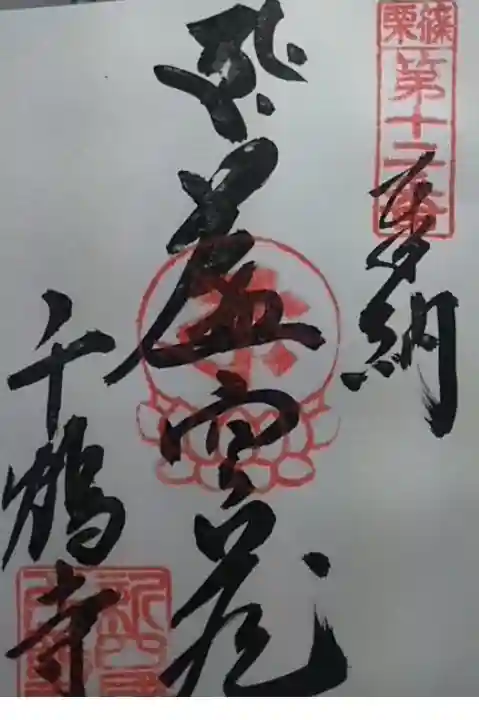 篠栗
第十二番
奉納
虚空蔵
千鶴寺